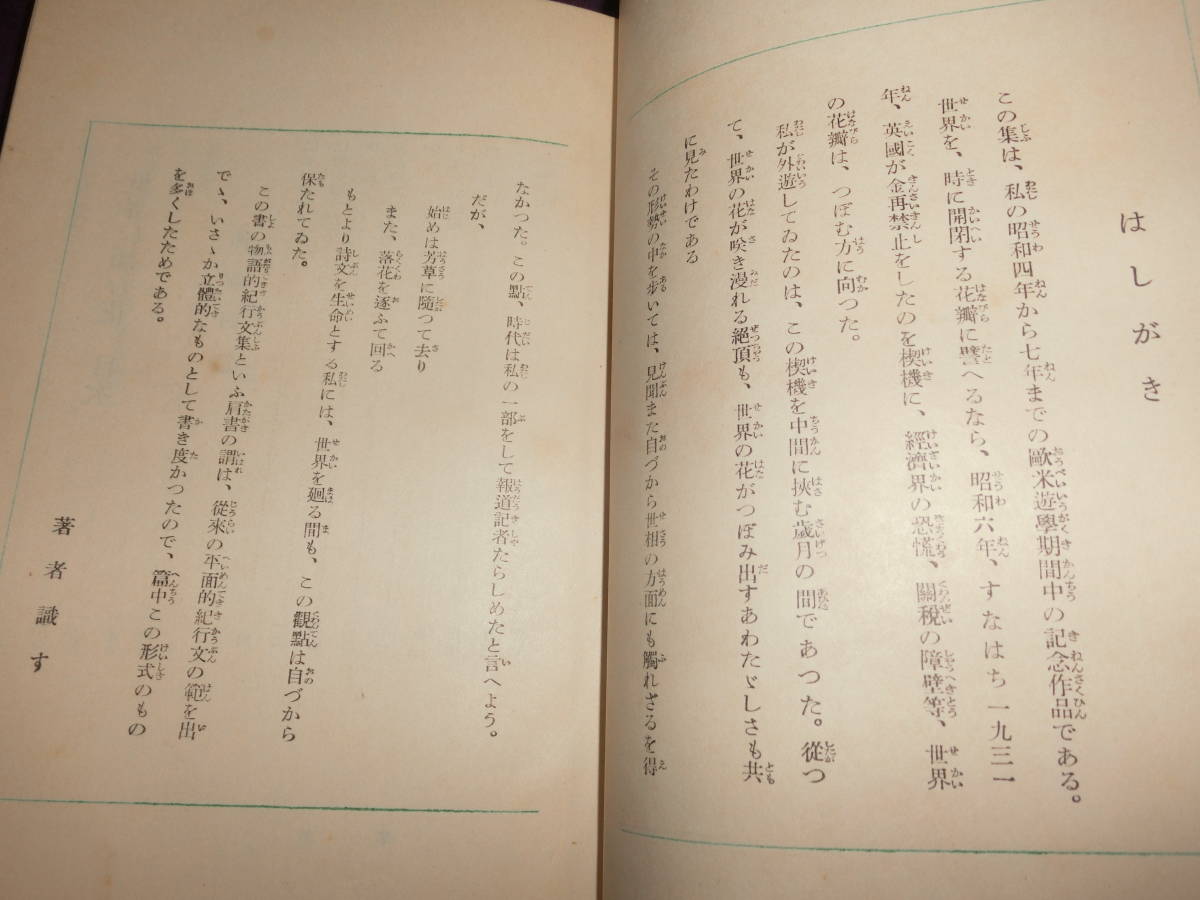 はしがき
この集は、私の昭和四年から七年までの歐米遊學期間中の記念作品である。
世界を、時に開閉する花瓣に譬へるなら、昭和六年、すなはち一九三一
年、英國が金再禁止をしたのを楔機に、經濟界の恐慌、關稅の障壁等、世界
の花瓣は、つぼむ方に向つた。
私が外遊してゐたのは、この楔機を中間に挾む歲月の間であつた。從つ
て、世界の花が咲き漫れる絕頂も、世界の花がつぼみ出すあわたゞしさも共
に見たわけである
その形勢の中を步いては、見聞また自づから世相の方面にも觸れざるを得
なかつた。この點、時代は私の一部をして報道記者たらしめたと言へよう。
だが、
始めは芳草に隨つて去り
また、落花を逐ふて回る
もとより詩文を生命とする私には、世界を廻る間も、この觀點は自づから
保たれてゐた。
この書の物語的紀行文集といふ肩書の謂は、從來の平面的紀行文の範を出
でゝ、いさゝか立體的なものとして書き度かつたので、篇中この形式のもの
を多くしたためである。
著者識す